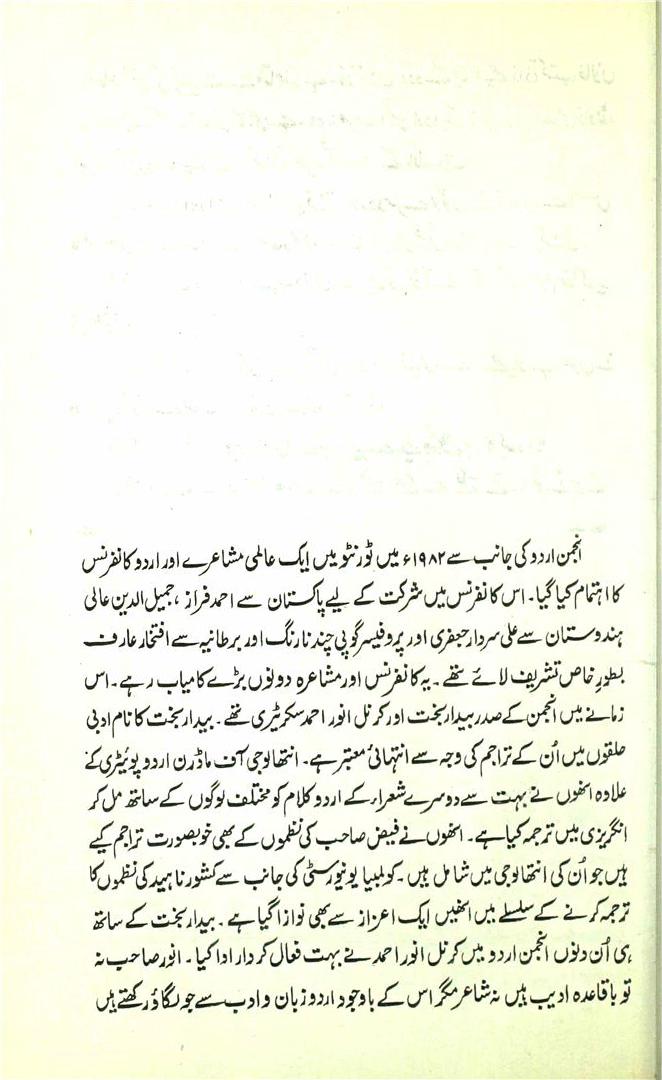 انجمن اردو کی جانب سے ۱۹۸۲ء میں ٹورنٹو میں ایک عالمی مشاعرے اور اردو کانفرنس
کا اہتمام کیا گیا۔ اس کانفرنس میں شرکت کے لیے پاکستان سے احمد فراز، جمیل الدین عالی
ہندوستان سے علی سردار جعفری اور پروفیسر گوپی چند نارنگ اور برطانیہ سے افتخار عارف
بطورِ خاص تشریف لائے تھے۔ یہ کانفرنس اور مشاعرہ دونوں بڑے کامیاب رہے۔ اس
زمانے میں انجمن کے صدر بیدار بخت اور کرنل انور احمد سکریٹری تھے۔ بیدار بخت کا نام ادبی
حلقوں میں اُن کے تراجم کی وجہ سے انتہائی معتبر ہے۔ انتھالوجی آف ماڈرن اردو پوئیٹری کے
علاوہ انھوں نے بہت سے دوسرے شعراء کے اردو کلام کو مختلف لوگوں کے ساتھ مل کر
انگریزی میں ترجمہ کیا ہے۔ انھوں نے فیض صاحب کی نظموں کے بھی خوبصورت تراجم کیے
ہیں جو اُن کی انتھالوجی میں شامل ہیں۔ کولمبیا یونیورسٹی کی جانب سے کشور ناہید کی نظموں کا
ترجمہ کرنے کے سلسلے میں انھیں ایک اعزاز سے بھی نوازا گیا ہے۔ بیدار بخت کے ساتھ
ہی اُن دنوں انجمن اردو میں کرنل انور احمد نے بہت فعال کردار ادا کیا۔ انور صاحب نہ
تو باقاعدہ ادیب ہیں نہ شاعر مگر اس کے باوجود اردو زبان و ادب سے جو لگاؤ رکھتے ہیں